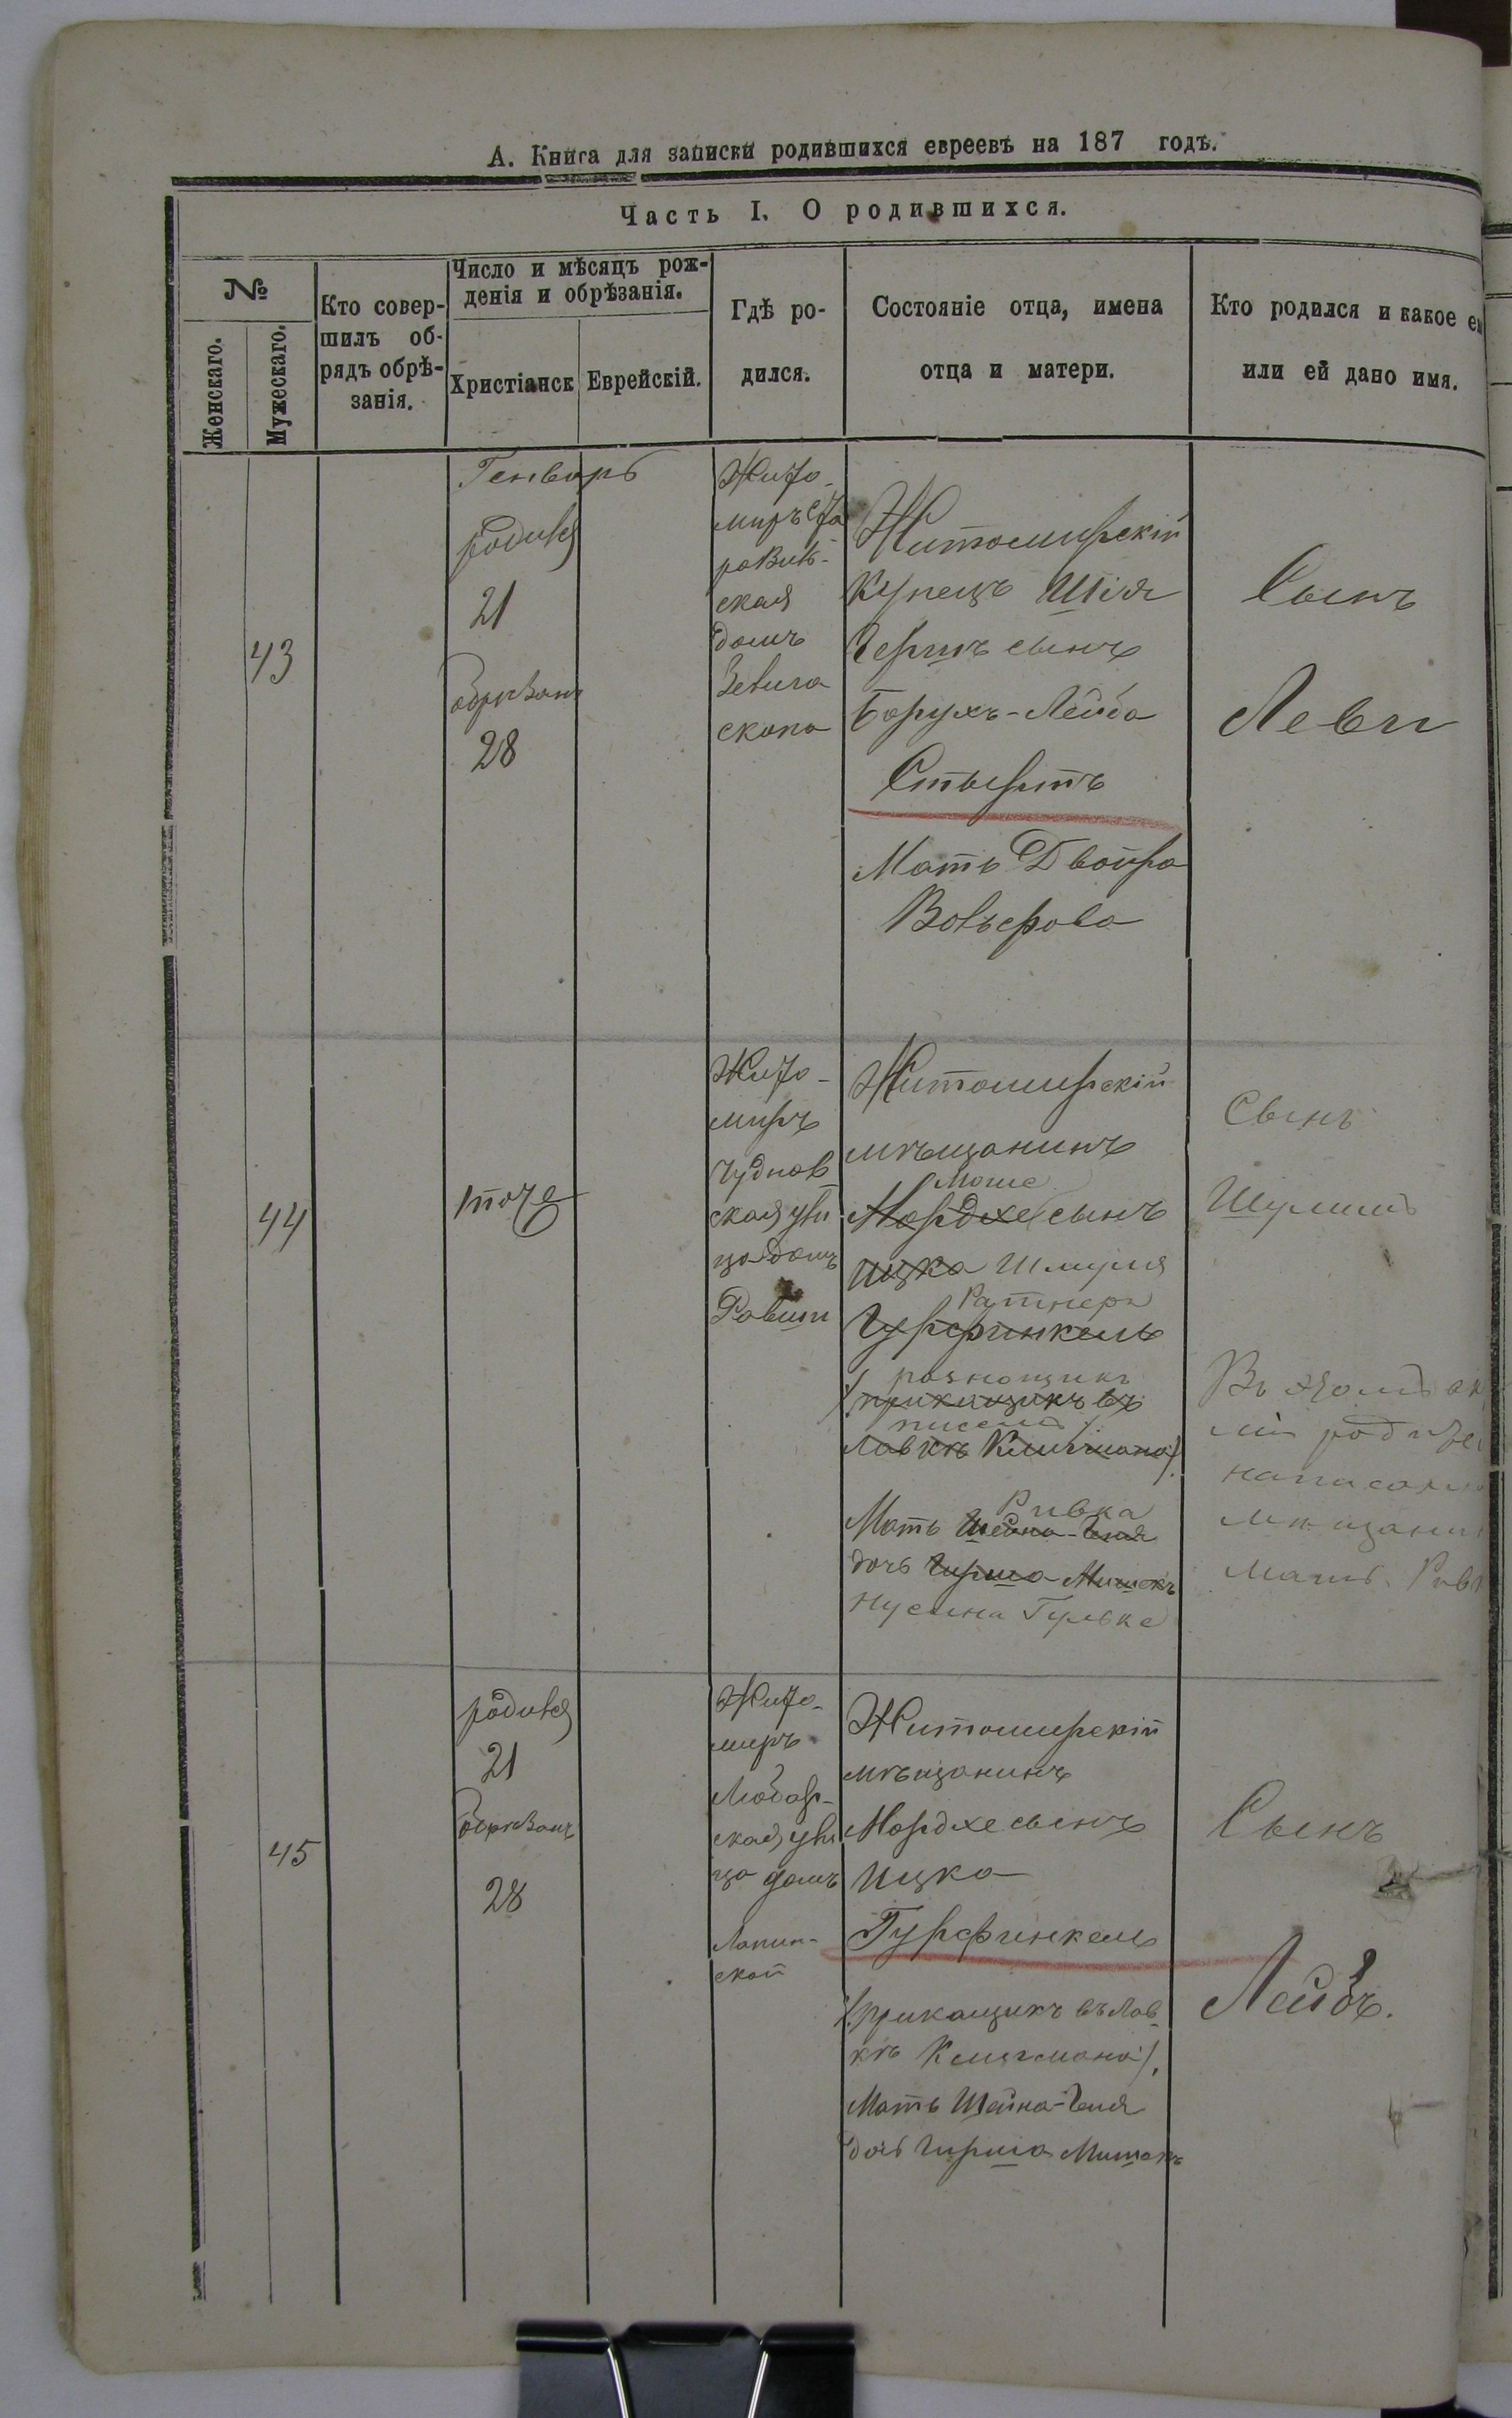 А. Книга для записки родившихся евреевъ на 187 годъ.
Часть I. О родившихся.
№
Женскаго.
Мужескаго.
Кто совер-
шилъ об-
рядъ обрѣ-
занія.
Число и мѣсяцъ рож-
денія и обрѣзанія.
Христіанск
Еврейскій.
Гдѣ ро-
дился.
Состояніе отца, имена
отца и матери.
Кто родился и какое ем
или ей дано имя.
43
Генварь
родився
21
обрѣзанъ
28
Жито-
миръ
ская
домъ
Житомирскій
Купецъ Шія
Гершъ сынъ
Борухъ-Лейба
Мать Двойра
Сынъ
Леви
44
тоже
Жито-
миръ
Чуднов
ская ули
ца домъ
Житомирскій
мѣщанинъ
Моше
Мордхе сынъ
Ицка Шмуля
Ратнеръ
Гурфинкель
разнощикъ
(прикащикъ въ
писемъ)
лавкѣ Клигмана).
Ривка
Мать Шейна-Геня
дочь Гирша Мишокъ
Нусина
Сынъ
Шулимъ
Въ
написан
мѣщанин
Мать Рив
45
родився
21
обрѣзанъ
28
Жито-
миръ
Любар-
ская ули
ца домъ
Лапин-
ской
Житомирскій
мѣщанинъ
Мордхе сынъ
Ицка
Гурфинкель
(прикащикъ въ лав
кѣ Клигмана).
Мать Шейна-Геня
дочь Гирша Мишокъ
Сынъ
Лейбъ.